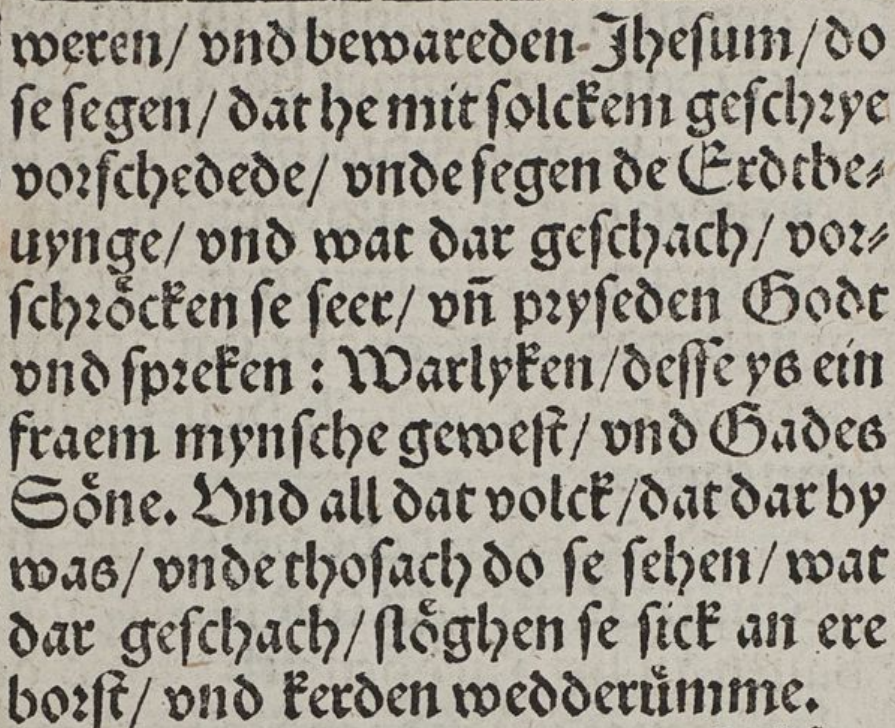 weren/ vnd bewareden Jheſum/ do
ſe ſegen/ dat he mit ſolckem geſchrye
vorſchedede/ vnde ſegen de Erdtbe⸗
uynge/ vnd wat dar geſchach/ vor⸗
ſchroͤcken ſe ſeer/ vñ pryſeden Godt
vnd ſpreken : Warlyken/ deſſe ys ein
fraem mynſche geweſt/ vnd Gades
Soͤne. Vnd all dat volck/ dat dar by
was/ vnde thoſach do ſe ſehen/ wat
dar geſchach/ ſloͤghen ſe ſick an ere
borſt/ vnd kerden wedderuͤmme.